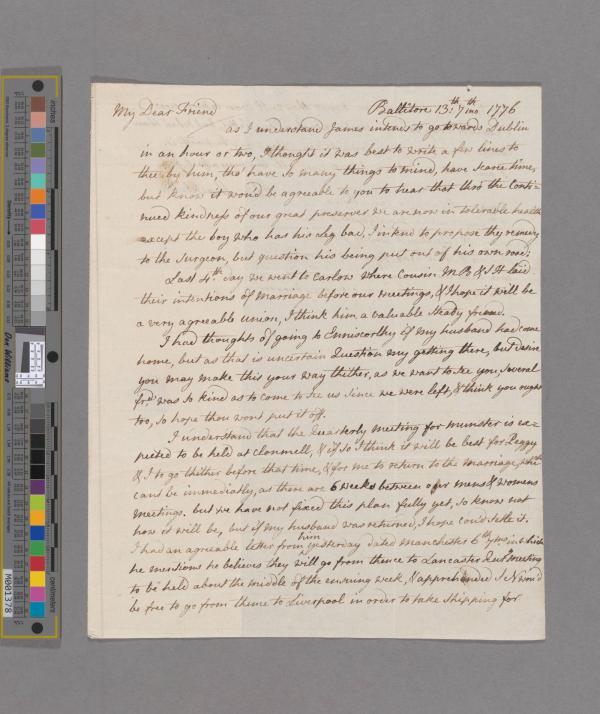 My Dear Friend Baltitore 13.th 7th mo 1776
as I understand James intends to go towards Dublin
in an hour or two, I thought it was best to write a few lines to
thee by him, tho' have so many things to mind, have scarce time,
but know it would be agreeable to you to hear that thro the Conti-
nued kindness of our great preserver we are now in tolerable health
except the boy who has his leg bad, I intend to propose thy remedy
to the Surgeon, but question his being put out of his own road;
Last 4th day we went to Carlow where Cousin M B & S H laid
their intentions of Marriage before our meetings, & I hope it will be
a very agreeable union, I think him a valuable steady friend.
I had thoughts of going to Enniscorthy if my husband had come
home, but as that is uncertain Question my getting there, but desire
you may make this your way thither, as we want to see you, several
frds was so kind as to come to see us since we were left, & think you ought
too, so hope thou wont put it off.
I understand that the Quarterly meeting for munster is ex-
pected to be held at Clonmell, & if so I think it will be best for Peggy
& I to go thither before that time, & for me to return to the marriage, which
cant be immediatly, as there are 6 weeks between our mens & womens
meetings. but we have not fixed this plan fully yet, so know not
how it will be, but if my husband was returned, I hope could settle it.
I had an agreeable letter from him yesterday dated Manchester 6th Inst in which
he mentions he believes they will go from thence to Lancaster Quar meeting
to be held about the middle of the ensuing week, & apprehended J N would
be free to go from thence to Liverpool in order to take shipping for
inches
centimetres
Don Williams
M001378